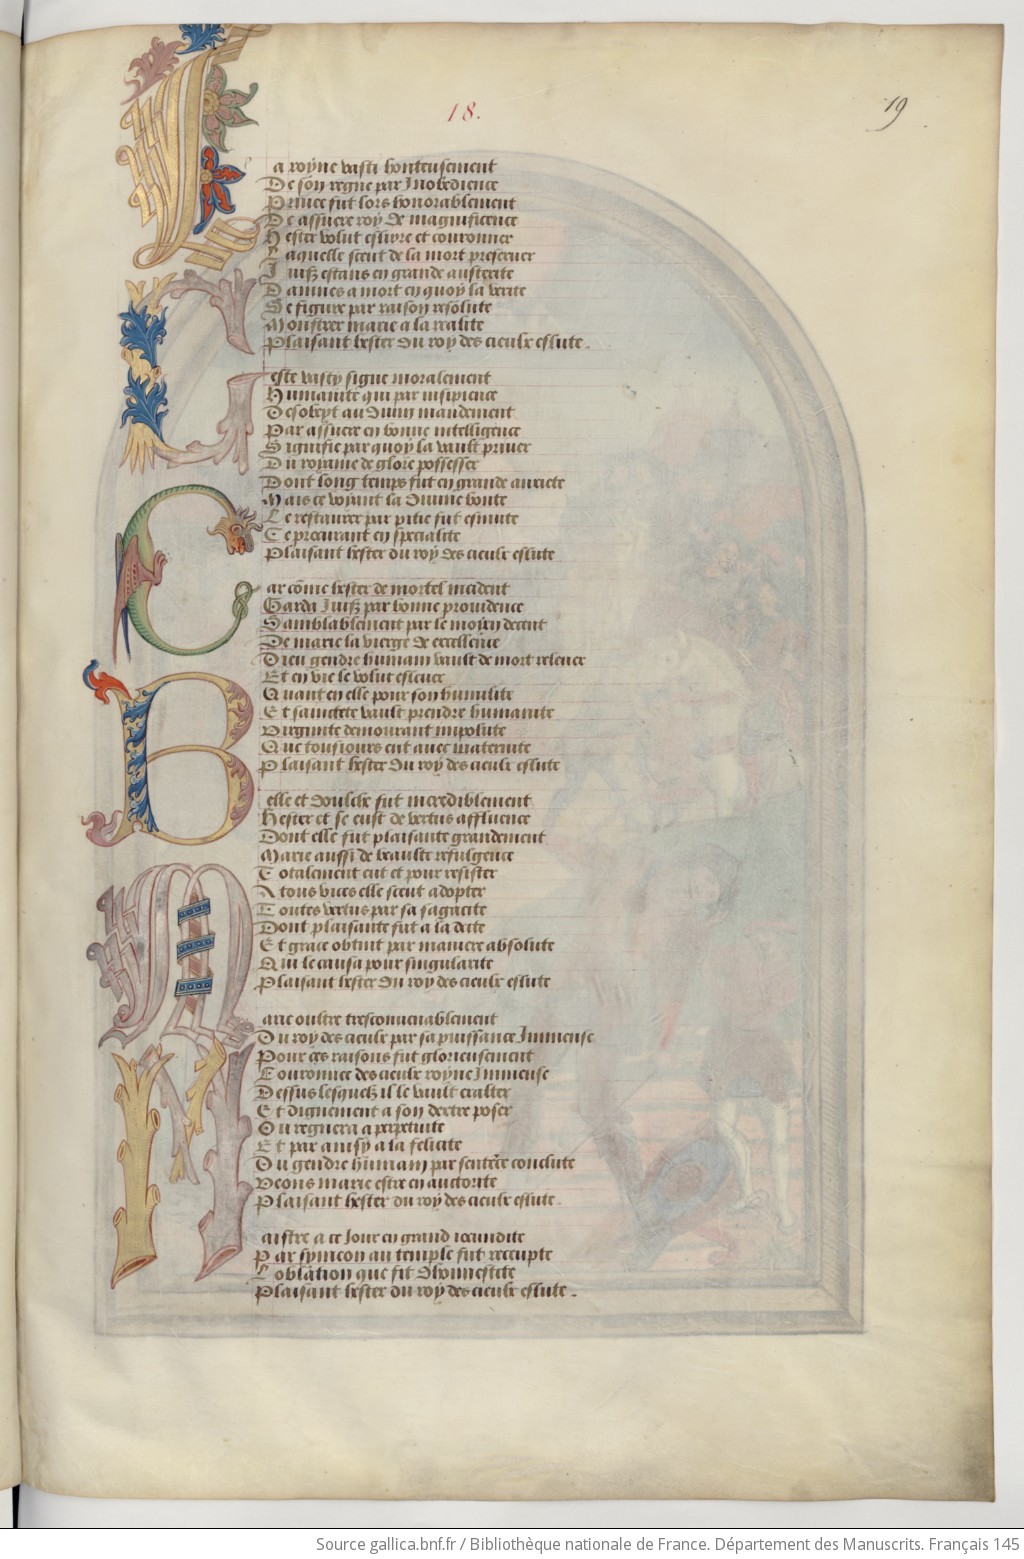 18.
19
La royne vasti honteusement
De son regne par Inobedience
Privee fut lors honorablement
De assuere roy de magnificence
Hester volut eslivre et couronner
Laquelle sceut de la mort preserver
Juifz estans en grande austerite
Dannes a mort en quoy la verite
Se figure par raison resolute
Monstrer marie a la realite
Plaisant hester du roy des cieulx eslute.
Ceste vasty signe moralement
Humanite qui par insipience
Desobeyt au divin mandement
Par assuere en bonne intelligence
Signifie par quoy la vault priver
Du royaume de glore possesser
Dont long temps fut en grande anxiete
Mais ce voyant la divine bonte
Le restaurer par pitie fut esmute
Te procurant en specialite
Plaisant hester du roy des cieulx eslute
Car come hester de mortel incident
Garda Juifz par bonne providence
Samblablement par le moyen decent
De marie la vierge de excellence
Dieu gendre humain vault de mort relever
Et en vie le volut eslever
Quant en elle pour son humilite
Et sainctete vault prendre humanite
Virginite demourant impolute
Que tousiours eut avec maternite
Plaisant hester du roy des cieulx eslute
Belle et doulche fut incrediblement
Hester et se eust de vertus affluence
Dont elle fut plaisante grandement
Marie aussi de beaulte refulgence
Totalement eut et pour resister
A tous vices elle sceut adopter
Toutes vertus par sa sagacite
Dont plaisante fut a la deite
Et grace obtint par maniere absolute
Qui le causa pour singularite
Plaisant hester du roy des cieulx eslute
Marie oultre tresconvenablement
Du roy des cieulx par sa puissance Immense
Pour ces raisons fut glorieusement
Couronnee des cieulx royne Immense
Dessus lesquelz il le vault exalter
Et dignement a son dextre poser
Ou regnera a perpetuite
Et par ainsy a la felicite
Du gendre humain par sentece conclute
Veons marie estre en auctorite
Plaisant hester du roy des cieulx eslute.
Maistre a ce Jour en grand iocundite
Par symeon au temple fut receupte
L'oblation que fit dhonnestete
Plaisant hester du roy des cieulx eslute.
Source gallica.bnf.fr / Bibliothèque nationale de France. Département des Manuscrits. Français 145